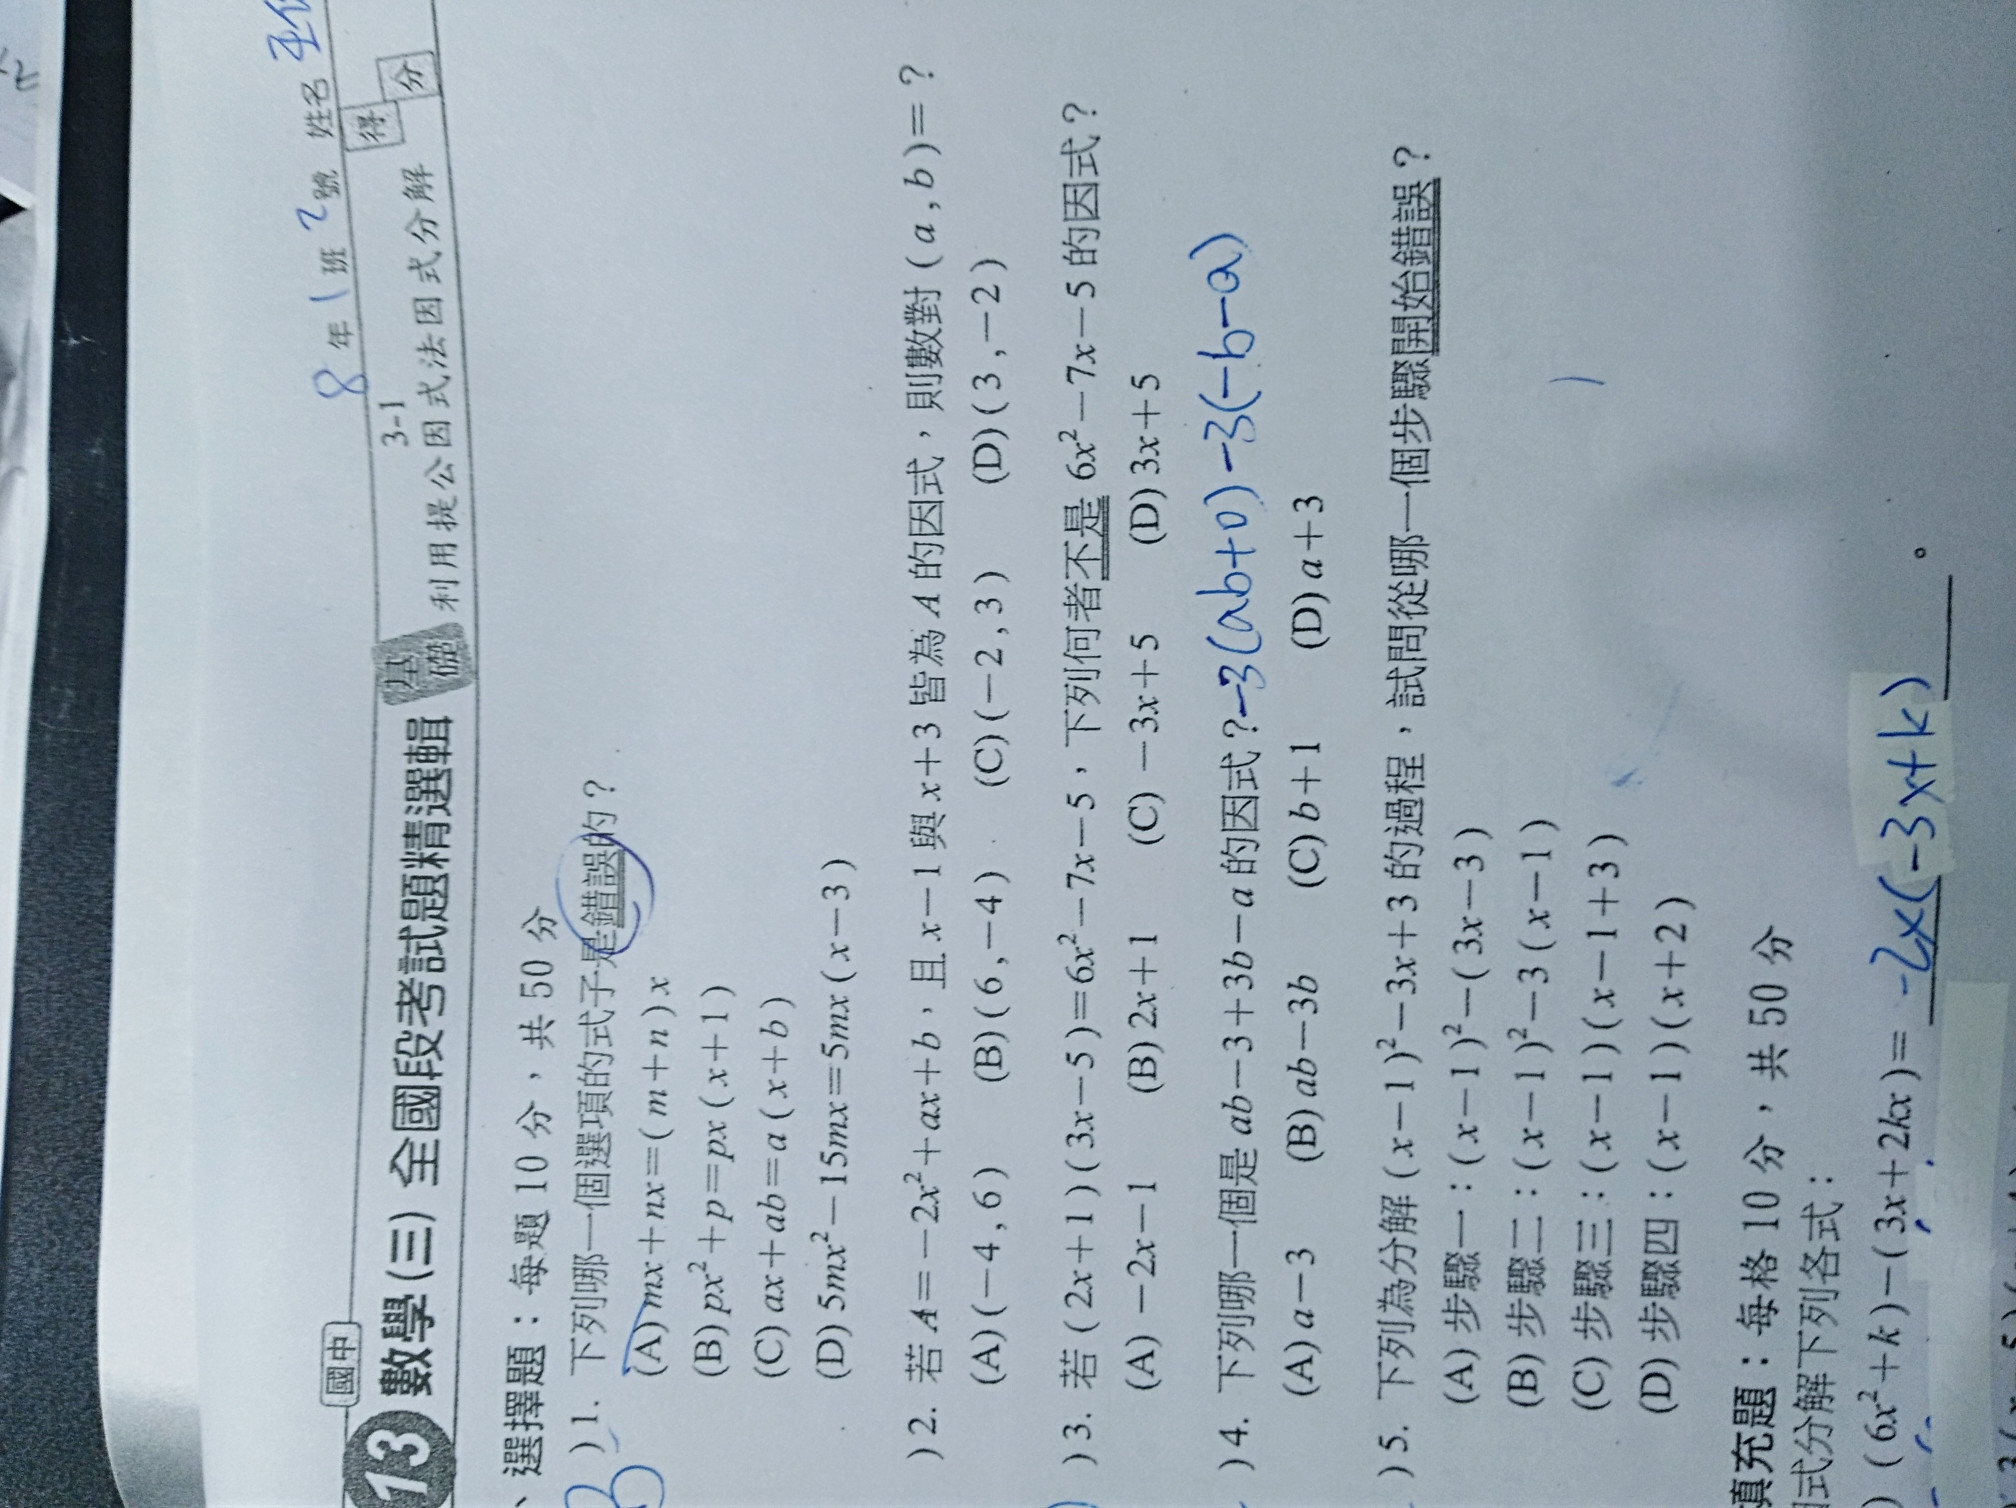 8年1班2號 姓名
國中
13 數學(三) 全國段考試題精選輯 基礎 3-1 利用提公因式法因式分解 得分
、選擇題：每題10分，共50分
)1. 下列哪一個選項的式子是錯誤的？
(A) mx+nx=(m+n)x
(B) px²+p=px(x+1)
(C) ax+ab=a(x+b)
(D) 5mx²-15mx=5mx(x-3)
)2. 若A=-2x²+ax+b，且x-1與x+3皆為A的因式，則數對(a,b)=？
(A)(-4,6) (B)(6,-4) (C)(-2,3) (D)(3,-2)
)3. 若(2x+1)(3x-5)=6x²-7x-5，下列何者不是6x²-7x-5的因式？
(A)-2x-1 (B)2x+1 (C)-3x+5 (D)3x+5
)4. 下列哪一個是ab-3+3b-a的因式？-3(ab+0)-3(-b-a)
(A)a-3 (B)ab-3b (C)b+1 (D)a+3
)5. 下列為分解(x-1)²-3x+3的過程，試問從哪一個步驟開始錯誤？
(A) 步驟一：(x-1)²-(3x-3)
(B) 步驟二：(x-1)²-3(x-1)
(C) 步驟三：(x-1)(x-1+3)
(D) 步驟四：(x-1)(x+2)
填充題：每格10分，共50分
因式分解下列各式：
)(6x²+k)-(3x+2kx)= -2x(-3x+k) 。